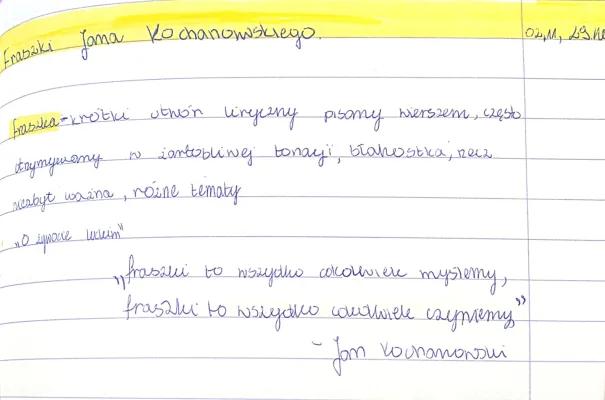 Fraszki Jana Kochanowskiego. 02.11, 29.
fraszka - krótki utwór liryczny pisany wierszem, często
utrzymywany w żartobliwej tonacji, błahostka, rzecz
niezbyt ważna, różne tematy
"O żywocie ludzkim"
"fraszki to wszytko cokolwiek myślemy,
fraszki to wszytko cokolwiek czyniemy"
- Jan Kochanowski